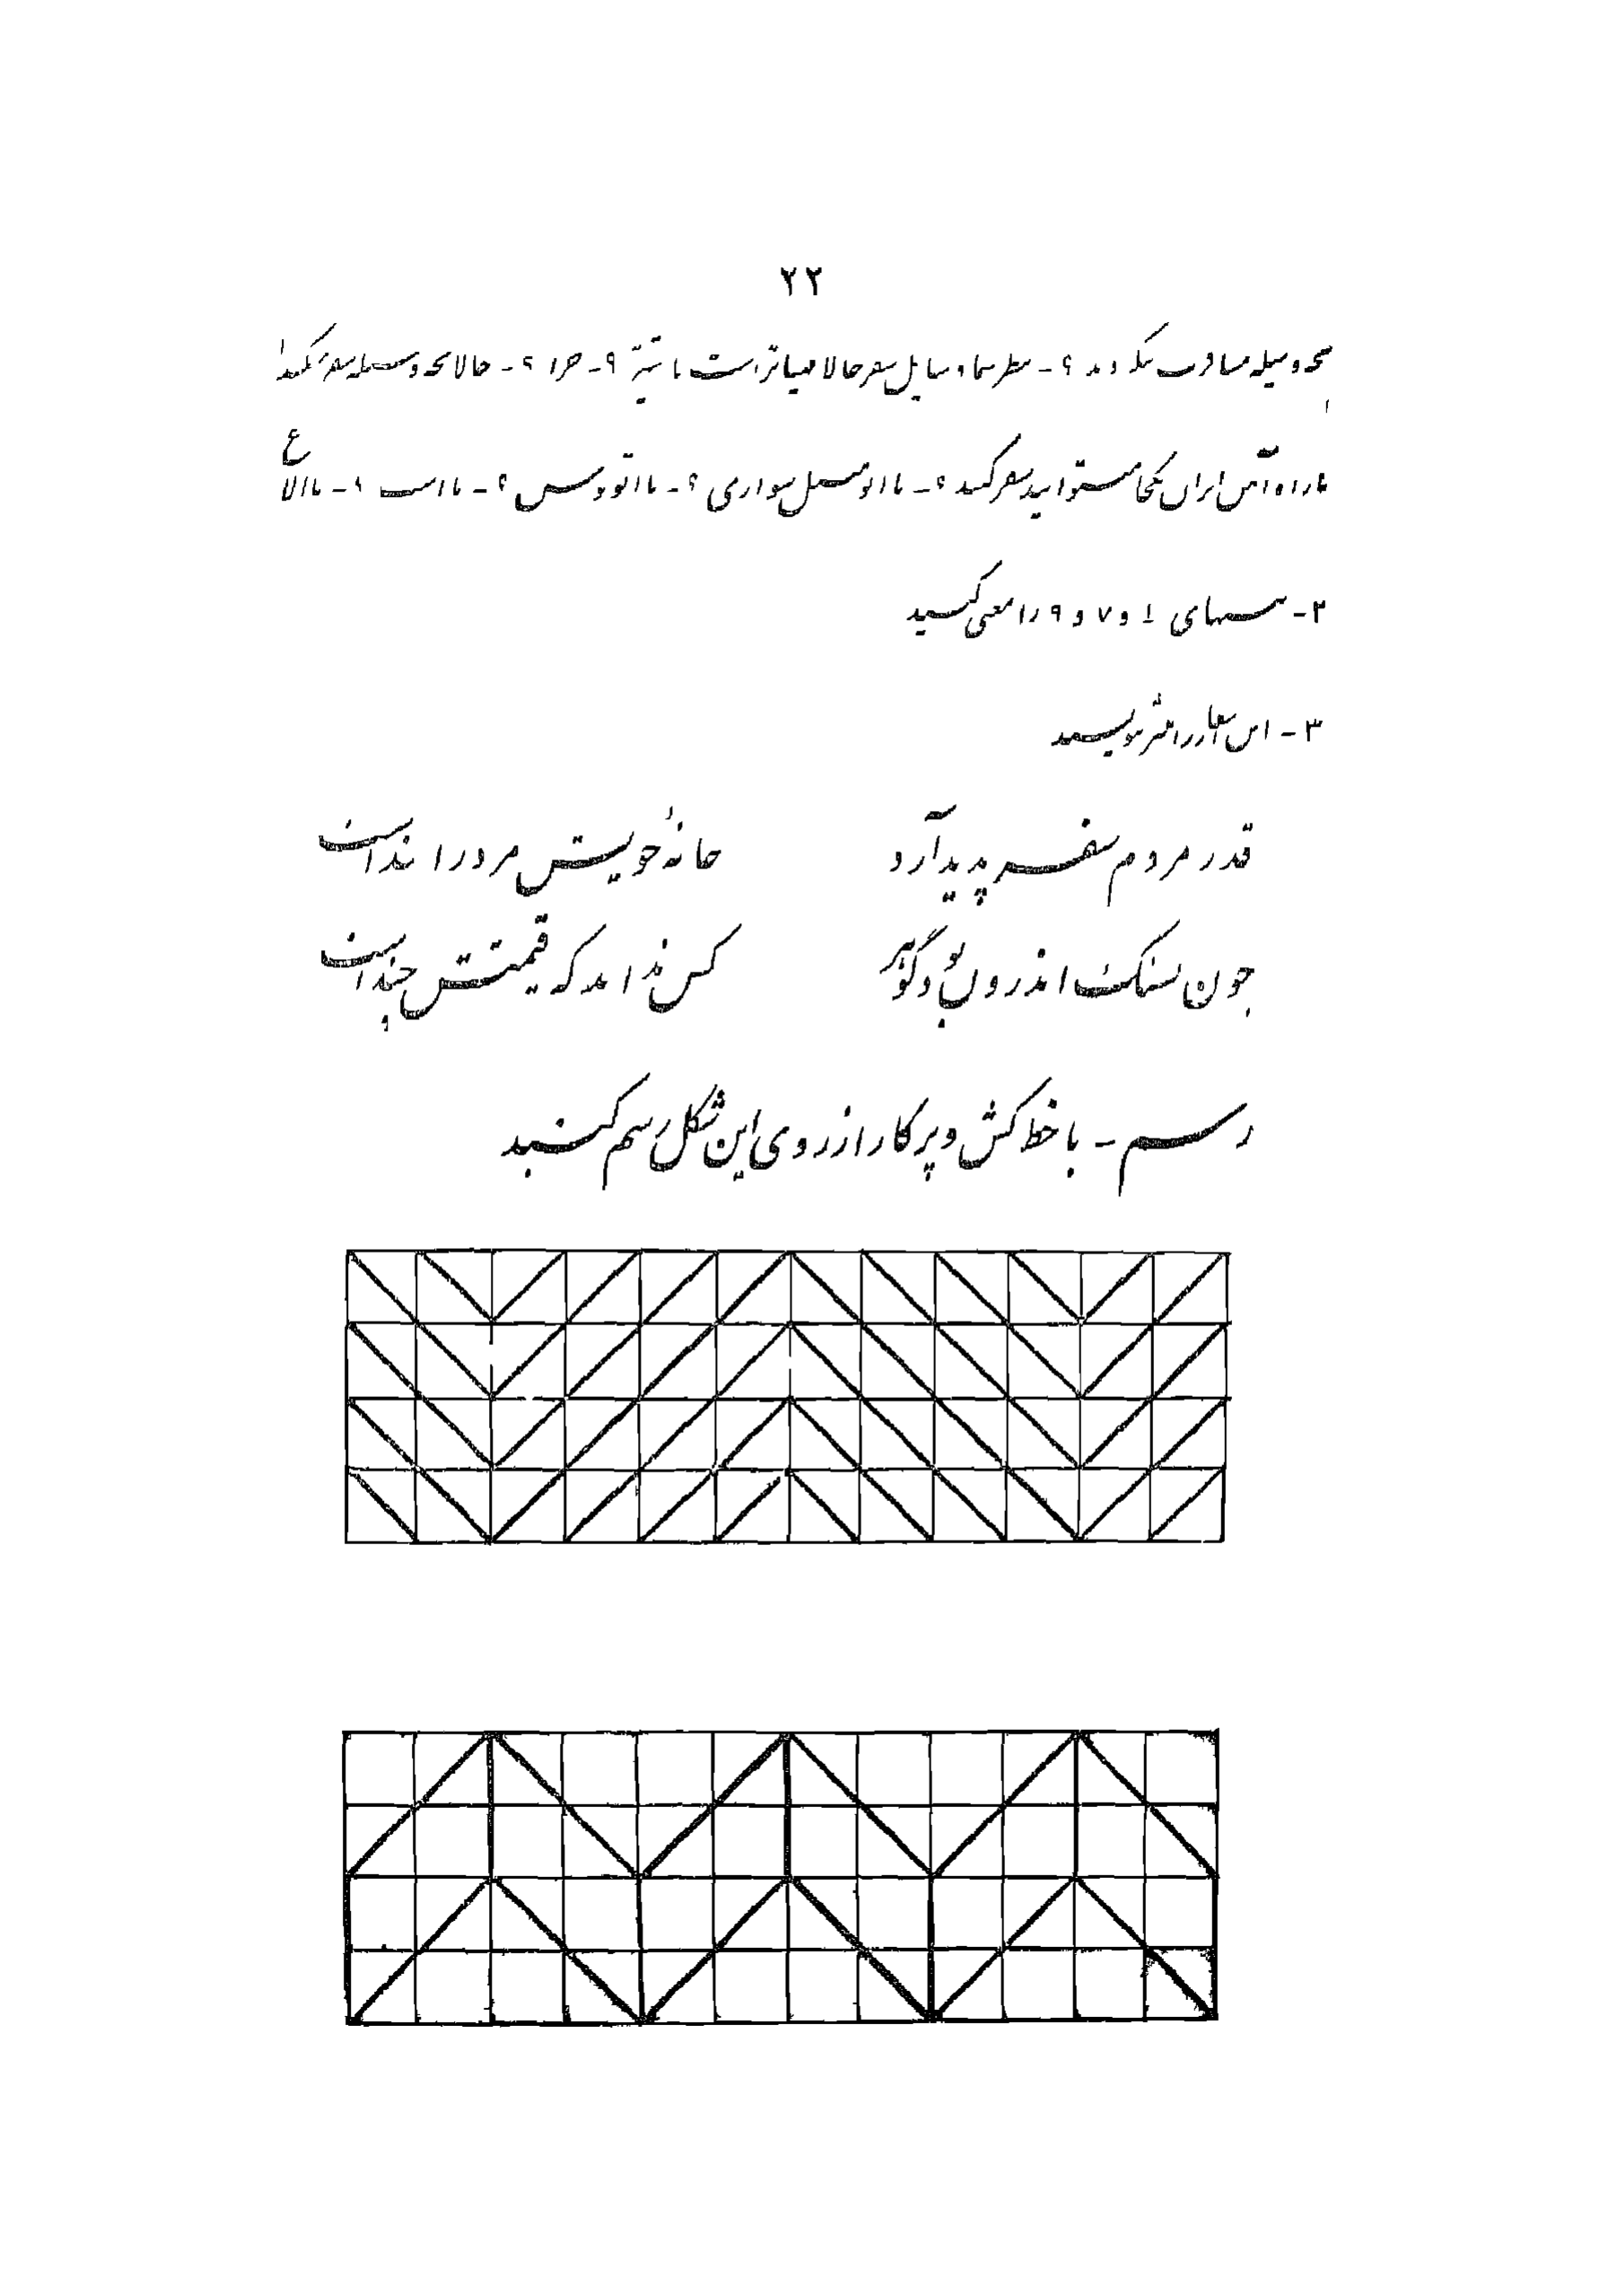 ۲۲
بچه وسیله مسافرت میکردند ؟ - بنظر شما وسایل سفر حالا مهیاتر است یا قدیم ؟ - چرا ؟ - حالا بچه وسیله سفر میکنند
با راه آهن ایران بکجا میتوانید سفر کنید ؟ - با اتومبیل سواری ؟ - با اتوبوس ؟ - با اسب ؟ - با الاغ
۲ - بیتهای ۱ و ۷ و ۹ را معنی کنید
۳ - این اشعار را بنثر بنویسید
قدر مردم سفر پدید آرد خانهٔ خویش مرد را بند است
چون بسنگ اندرون بود گوهر کس نداند که قیمتش چند است
رسم - با خط‌کش و پرگار از روی این شکل رسم کنید